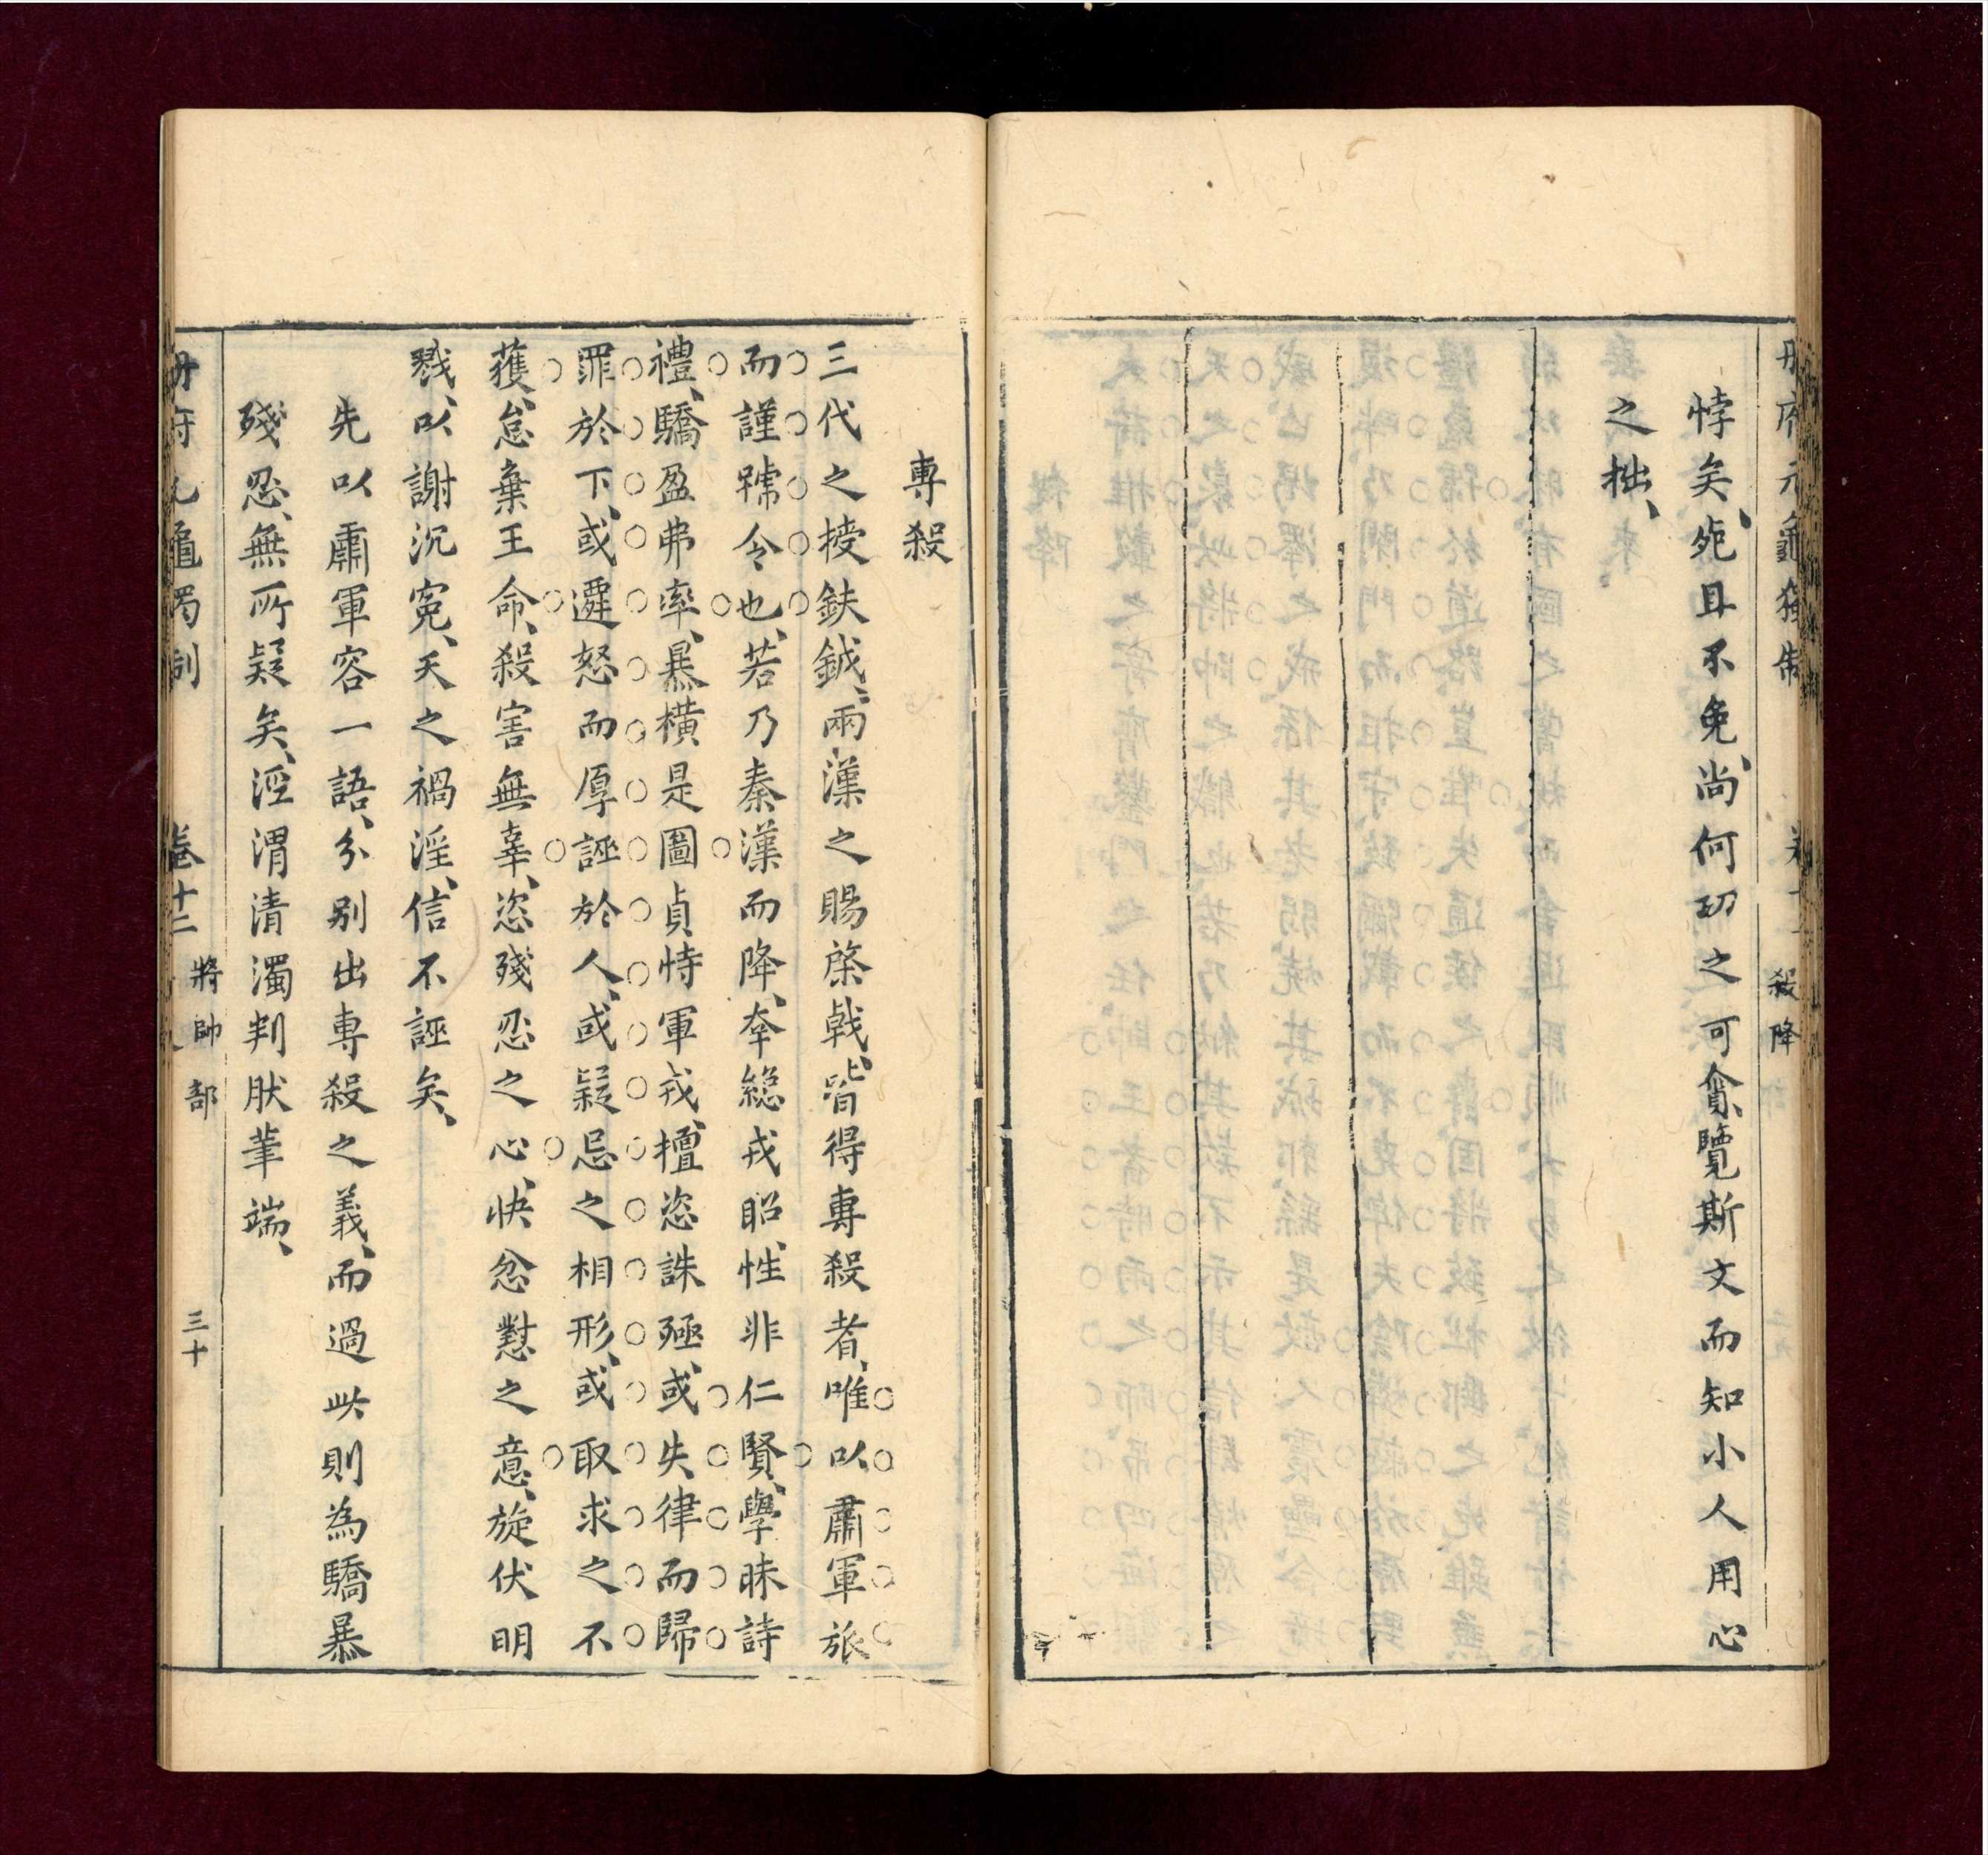 冊府元龜獨制
殺降
悖矣、死且不免、尚何功之可僉、覽斯文而知小人用心
之拙、
專殺
三代之授鈇鉞、兩漢之賜棨戟、皆得專殺者、唯以肅軍旅
而謹號令也、若乃秦漢而降、奉總戎昭、性非仁賢、學昧詩
禮、驕盈弗率、暴橫是圖、貞恃軍戎、擅恣誅殛、或失律而歸
罪於下、或遷怒而厚誣於人、或疑忌之相形、或取求之不
獲、怠棄王命、殺害無辜、恣殘忍之心、快忿懟之意、旋伏明
戮、以謝沉冤、天之禍淫、信不誣矣、
先以肅軍容一語、分別出專殺之義、而過此則為驕暴
殘忍、無所疑矣、涇渭清濁判肰筆端、
冊府元龜獨制
卷十二
將帥部
三十